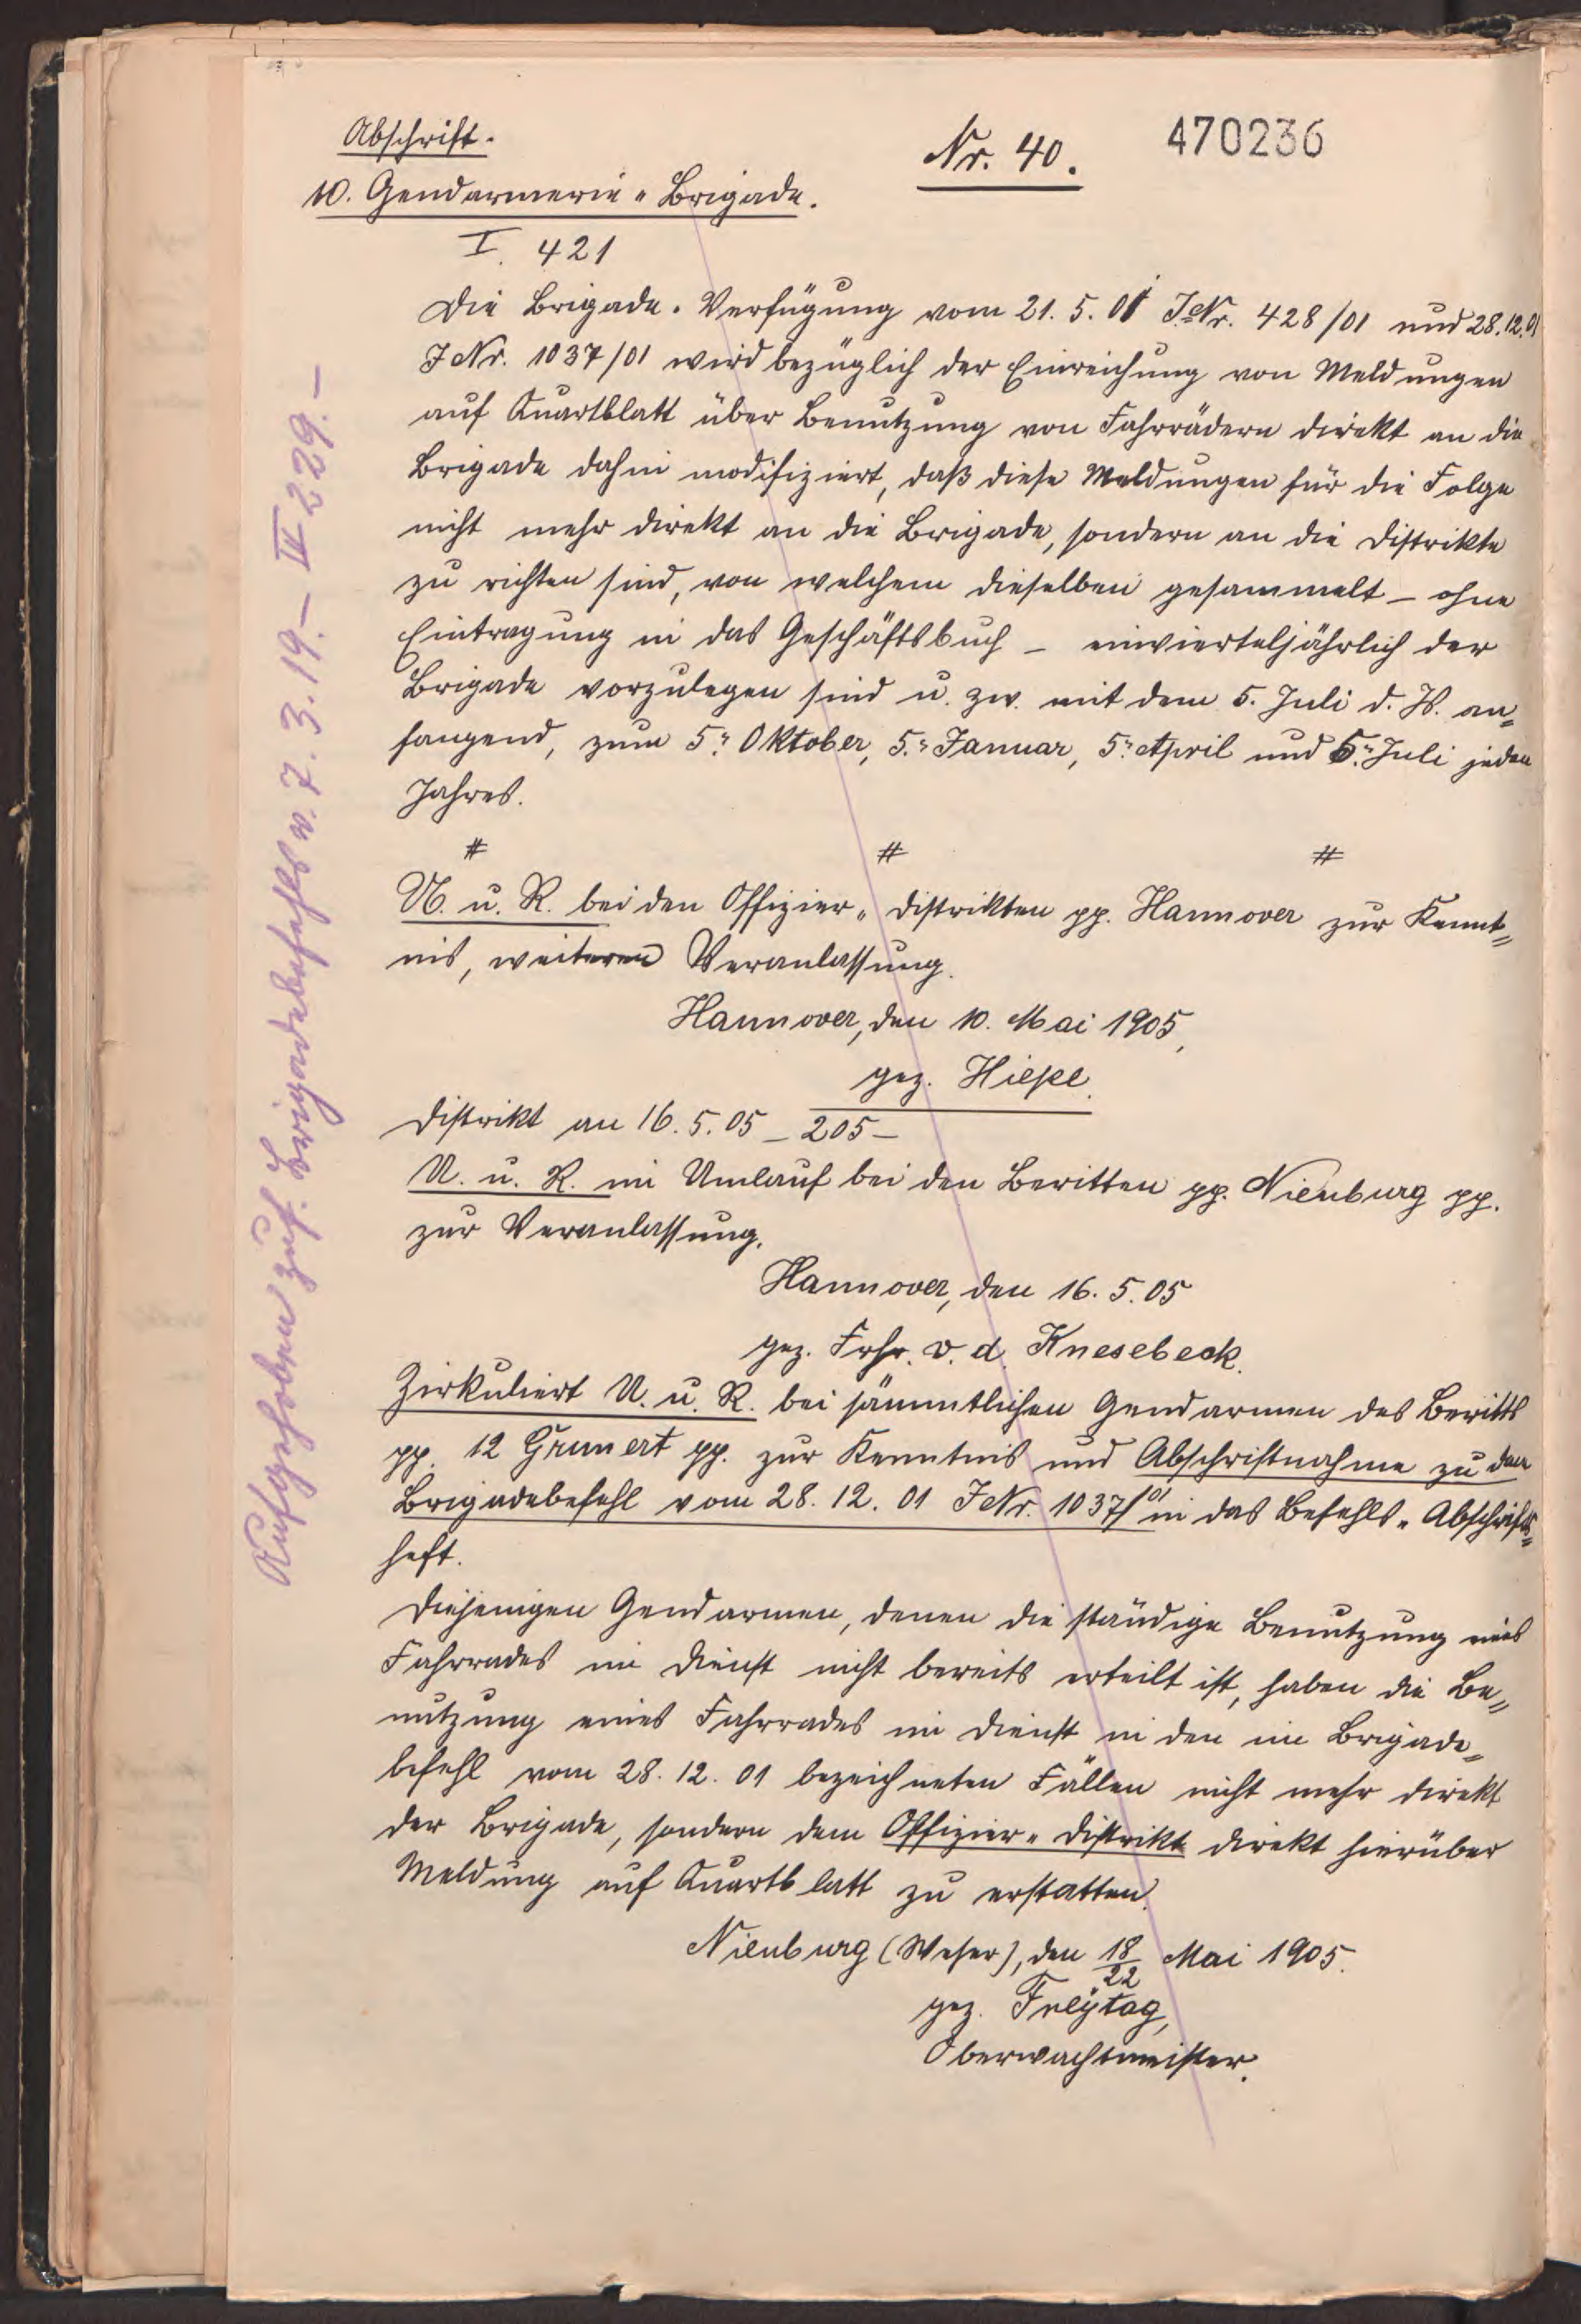 Abschrift.
Nr. 40.
470236
10. Gendarmerie-Brigade.
I. 421
Die Brigade-Verfügung vom 21. 5. 01 J.Nr. 428/01 und 28.12.01
J Nr. 1037/01 wird bezüglich der Einreichung von Meldungen
auf Quartblatt über Benutzung von Fahrrädern direkt an die
Brigade dahin modifiziert, daß diese Meldungen für die Folge
nicht mehr direkt an die Brigade, sondern an die Distrikte
zu richten sind, von welchem dieselben gesammelt – ohne
Eintragung in das Geschäftsbuch – einvierteljährlich der
Brigade vorzulegen sind u. zw. mit dem 5. Juli d. Js. an=
fangend, zum 5. Oktober, 5. Januar, 5. April und 5. Juli jeden
Jahres.
# # #
U. u. R. bei den Offizier-Distrikten pp. Hannover zur Kennt=
nis, weiteren Veranlassung.
Hannover, den 10. Mai 1905,
gez. Hiepe.
Distrikt an 16. 5. 05 – 205 –
U. u. R. im Umlauf bei den Beritten pp. Nienburg pp.
zur Veranlassung.
Hannover, den 16. 5. 05
gez. Frhr. v. d. Knesebeck.
Zirkuliert U. u. R. bei sämmtlichen Gendarmen des Beritts
pp. 12 Grunert pp. zur Kenntnis und Abschriftnahme zu dem
Brigadebefehl vom 28. 12. 01 J Nr. 1037/01 in das Befehls-Abschrifts=
heft.
Diejenigen Gendarmen, denen die ständige Benutzung eines
Fahrrades im Dienst nicht bereits erteilt ist, haben die Be=
nutzung eines Fahrrades im Dienst in den im Brigade=
befehl vom 28. 12. 01 bezeichneten Fällen nicht mehr direkt
der Brigade, sondern dem Offizier-Distrikt direkt hierüber
Meldung auf Quartblatt zu erstatten.
Nienburg (Weser), den 18/22 Mai 1905.
gez. Freytag,
Oberwachtmeister.
Aufgehoben zuf. Brigadebefehls v. 7. 3. 19. – II 229. –